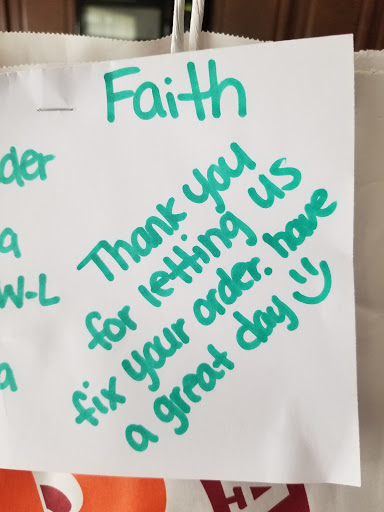 Faith
der
a
W-L
a
Thank you
for letting us
fix your order. have
a great day